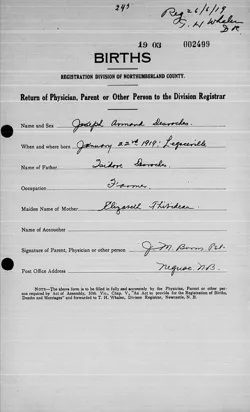 243
Reg 26/6/19
T. H. Whalen
D R.
19 03 002499
BIRTHS
REGISTRATION DIVISION OF NORTHUMBERLAND COUNTY.
Return of Physician, Parent or Other Person to the Division Registrar
Name and Sex Joseph Armand Desroches
When and where born January 22nd 1919, Legaceville
Name of Father Isidore Desroches
Occupation Farmer
Maiden Name of Mother Elizabeth Thibideau
Name of Accoucher
Signature of Parent, Physician or other person J. M.
Post Office Address Neguac N.B.
NOTE—The above form is to be filled in fully and accurately by the Physician, Parent or other per-
son required by Act of Assembly, 50th Vic., Chap. V, "An Act to provide for the Registration of Births,
Deaths and Marriages" and forwarded to T. H. Whalen, Division Registrar, Newcastle, N. B.